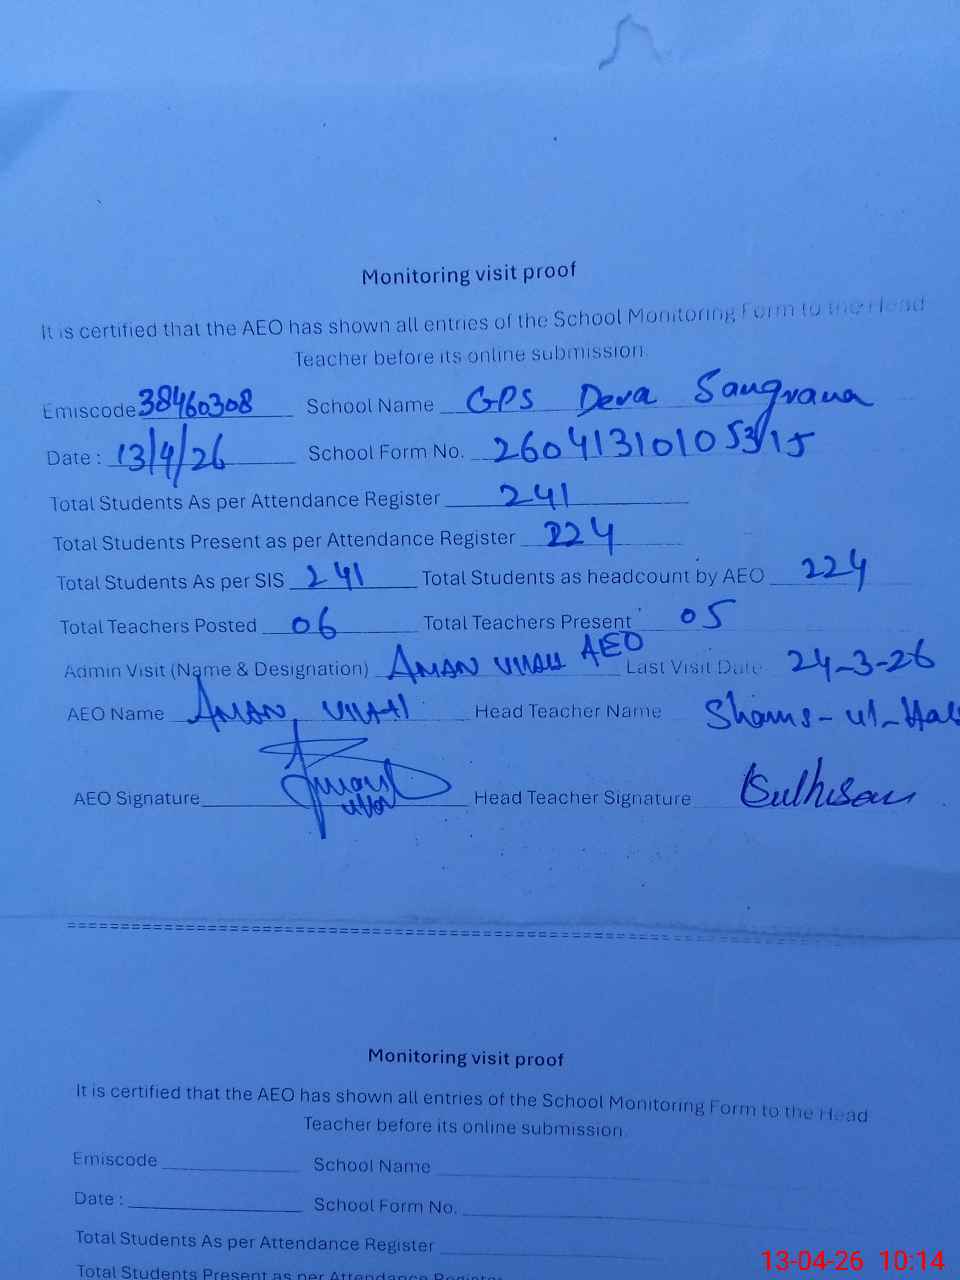 Monitoring visit proof
It is certified that the AEO has shown all entries of the School Monitoring Form to the Head
Teacher before its online submission.
Emiscode 38460308 School Name GPS Deva Sangrana
Date : 13/4/26 School Form No. 260413101053915
Total Students As per Attendance Register 241
Total Students Present as per Attendance Register 224
Total Students As per SIS 241 Total Students as headcount by AEO 224
Total Teachers Posted 06 Total Teachers Present 05
Admin Visit (Name & Designation) AMAN ULLAH AEO Last Visit Date 24-3-26
AEO Name AMAN ULLAH Head Teacher Name Shams-ul-
AEO Signature Head Teacher Signature
Monitoring visit proof
It is certified that the AEO has shown all entries of the School Monitoring Form to the Head
Teacher before its online submission.
Emiscode School Name
Date : School Form No.
Total Students As per Attendance Register
Total Students Present as per Attendance Register
13-04-26 10:14